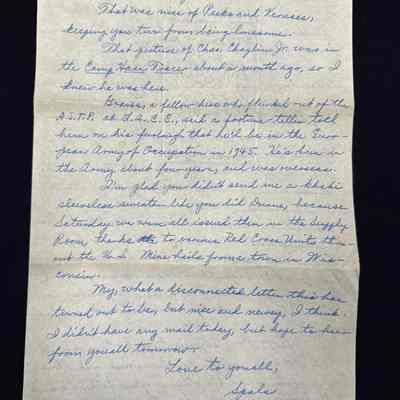 That was nice of Pecks and
keeping you two from being lonesome.
That picture of Chas. Chaplin Jr. was in
the Camp Haan Tracer about a month ago, so I
knew he was here.
a fellow here who flunked out of the
A.S.T.P. at said a fortune teller told
him on his furlough that he'll be in the Euro-
pean Army of Occupation in 1945. He's been in
the Army about four years, and was overseas.
I'm glad you didn't send me a khaki
sleeveless sweater like you did because
Saturday we were all issued them in the Supply
Room, thanks to various Red Cross Units thru-
out the U.S. Mine hails from a town in Wis-
consin.
My, what a disconnected letter this has
turned out to be, but nice and newsy, I think.
I didn't have any mail today, but hope to hear
from youall tomorrow.
Love to youall,